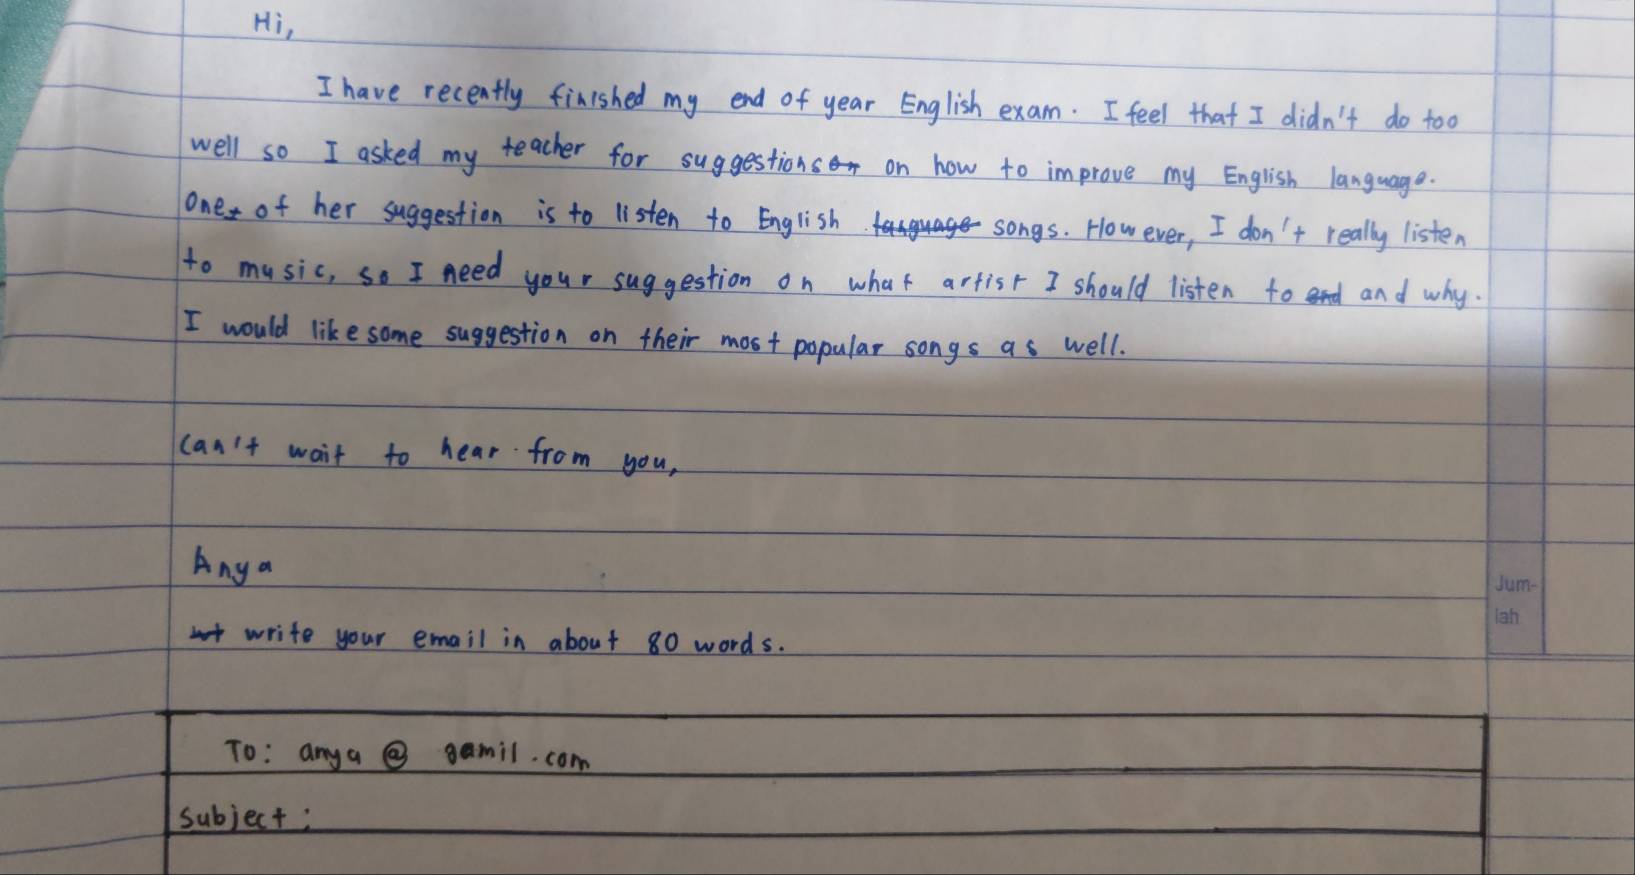 Hi,
I have recently finished my end of year English exam. I feel that I didn't do too
well so I asked my teacher for suggestions on how to improve my English language.
One of her suggestion is to listen to English songs. However, I don't really listen
to music, so I need your suggestion on what artist I should listen to and why.
I would like some suggestion on their most popular songs as well.
Can't wait to hear from you,
Anya
write your email in about 80 words.
To: anya @ gamil.com
Subject:
Jum-
lah